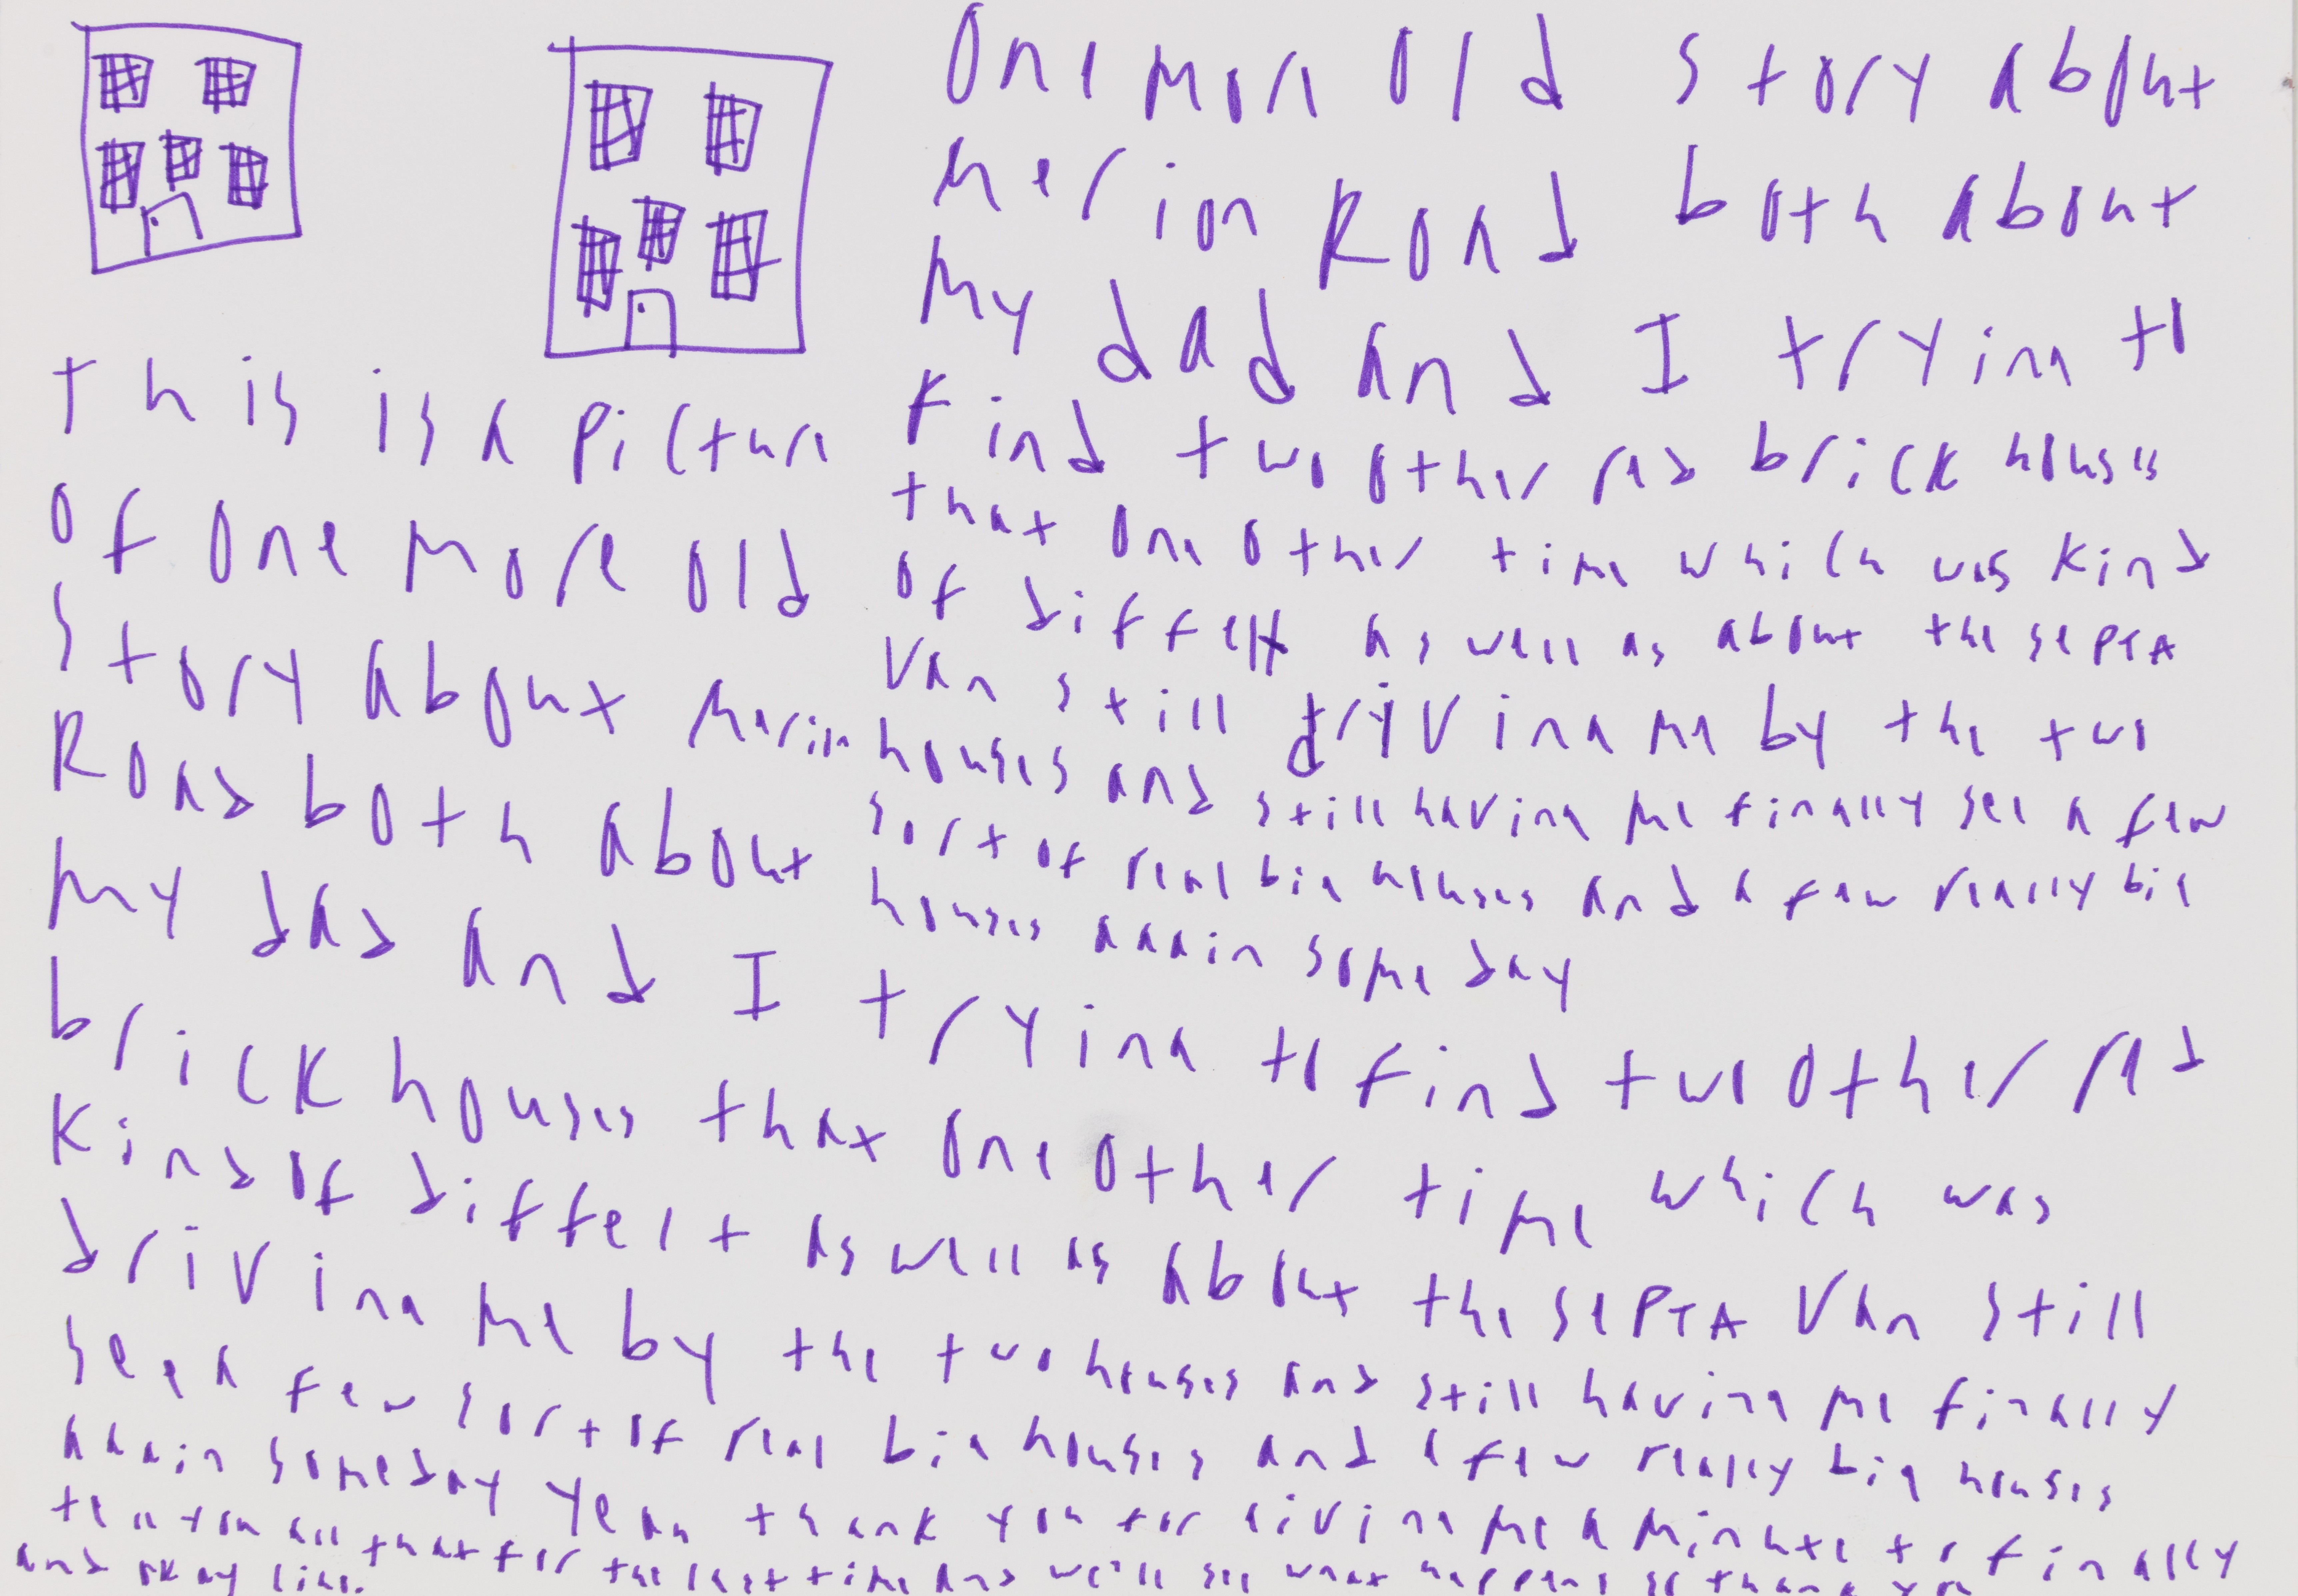 One more old story about
Merion Road both about
my dad and I trying to
find two other red brick houses
that one other time which was kind
of differt as well as about the SEPTA
van still driving me by the two
houses and still having me finally see a few
sort of real big houses and a few really big
houses again someday
This is a picture
of one more old
story about Merion
Road both about
my dad and I trying to find two other red
brick houses that one other time which was
kind of differt as well as about the SEPTA van still
driving me by the two houses and still having me finally
see a few sort of real big houses and a few really big houses
again someday yeah thank you for giving me a minute to finally
tell you all that for the last time and we'll see what happens so thank you
and okay